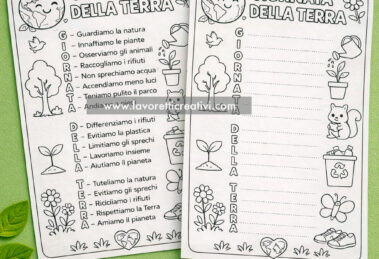 DELLA TERRA
G - Guardiamo la natura
I - Innaffiamo le piante
O - Osserviamo gli animali
R - Raccogliamo i rifiuti
N - Non sprechiamo acqua
A - Accendiamo meno luci
T - Teniamo pulito il parco
A - Andiamo a piedi
D - Differenziamo i rifiuti
E - Evitiamo la plastica
L - Limitiamo gli sprechi
L - Lavoriamo insieme
A - Aiutiamo il pianeta
T - Tuteliamo la natura
E - Evitiamo gli sprechi
R - Ricicliamo i rifiuti
R - Rispettiamo la Terra
A - Amiamo il pianeta
GIORNATA
DELLA TERRA
G
I
O
R
N
A
T
A
D
E
L
L
A
T
E
R
R
A
www.lavoretticreativi.com